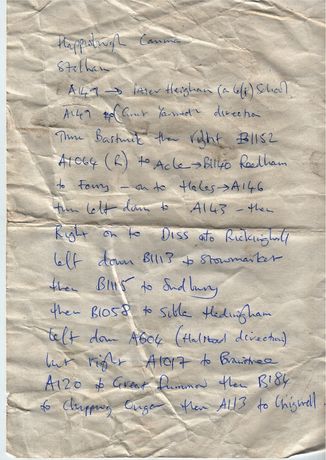 Happisburgh Common
Stalham
A149 → Potter Heigham (a bit) Short
A149 to (Great Yarmouth direction
Thru Bastwick then right B1152
A1064 (R) to Acle → B1140 Reedham
to Ferry - on to Hales → A146
turn left down to A143 - then
Right on to DISS Rickinghall
left down B1113 to Stowmarket
then B1115 to Sudbury
then B1058 to Sible Hedingham
left down A604 (Halstead direction)
but right A1017 to Braintree
A120 to Great Dunmow then B184
to Chipping Ongar then A113 to Chigwell